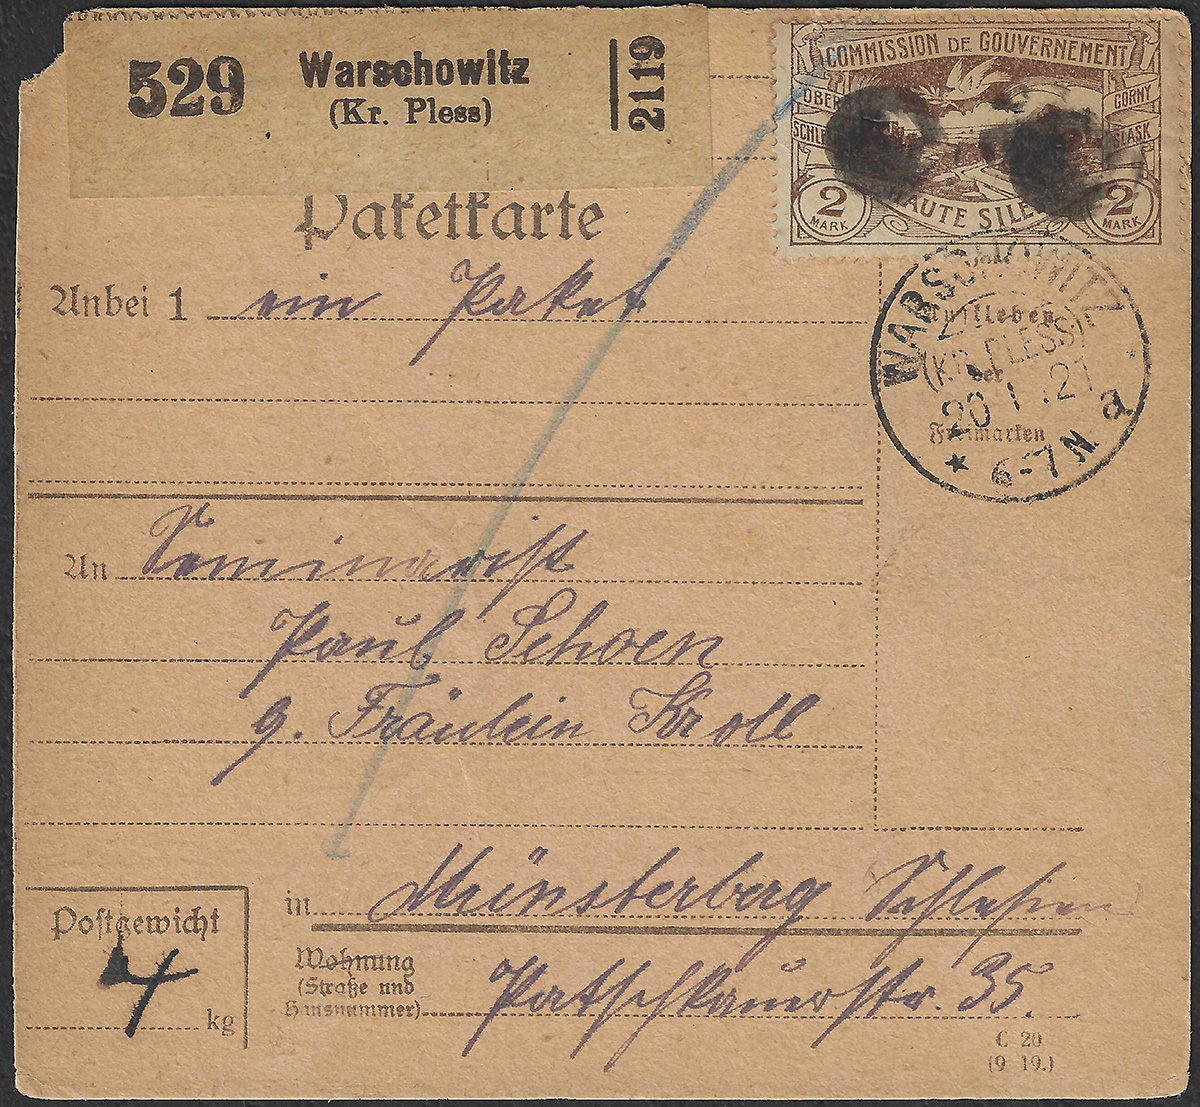 529 Warschowitz
(Kr. Pless)
2119
COMMISSION DE GOUVERNEMENT
OBER GORNY
SCHLE SLASK
2 MARK HAUTE SILE 2 MARK
Paketkarte
Anbei 1 ein Paket
WARSCHOWITZ
Aufkleben
(KR. PLESS)
der
20.1.21
Freimarken
* * 6-7 N a
An Seminarist
Paul Schoen
q. Fräulein Kroll
in Münsterberg Schlesien
Postgewicht
4 kg
Wohnung
(Straße und
Hausnummer) Patschkauerstr. 35.
C 20
(9 19.)